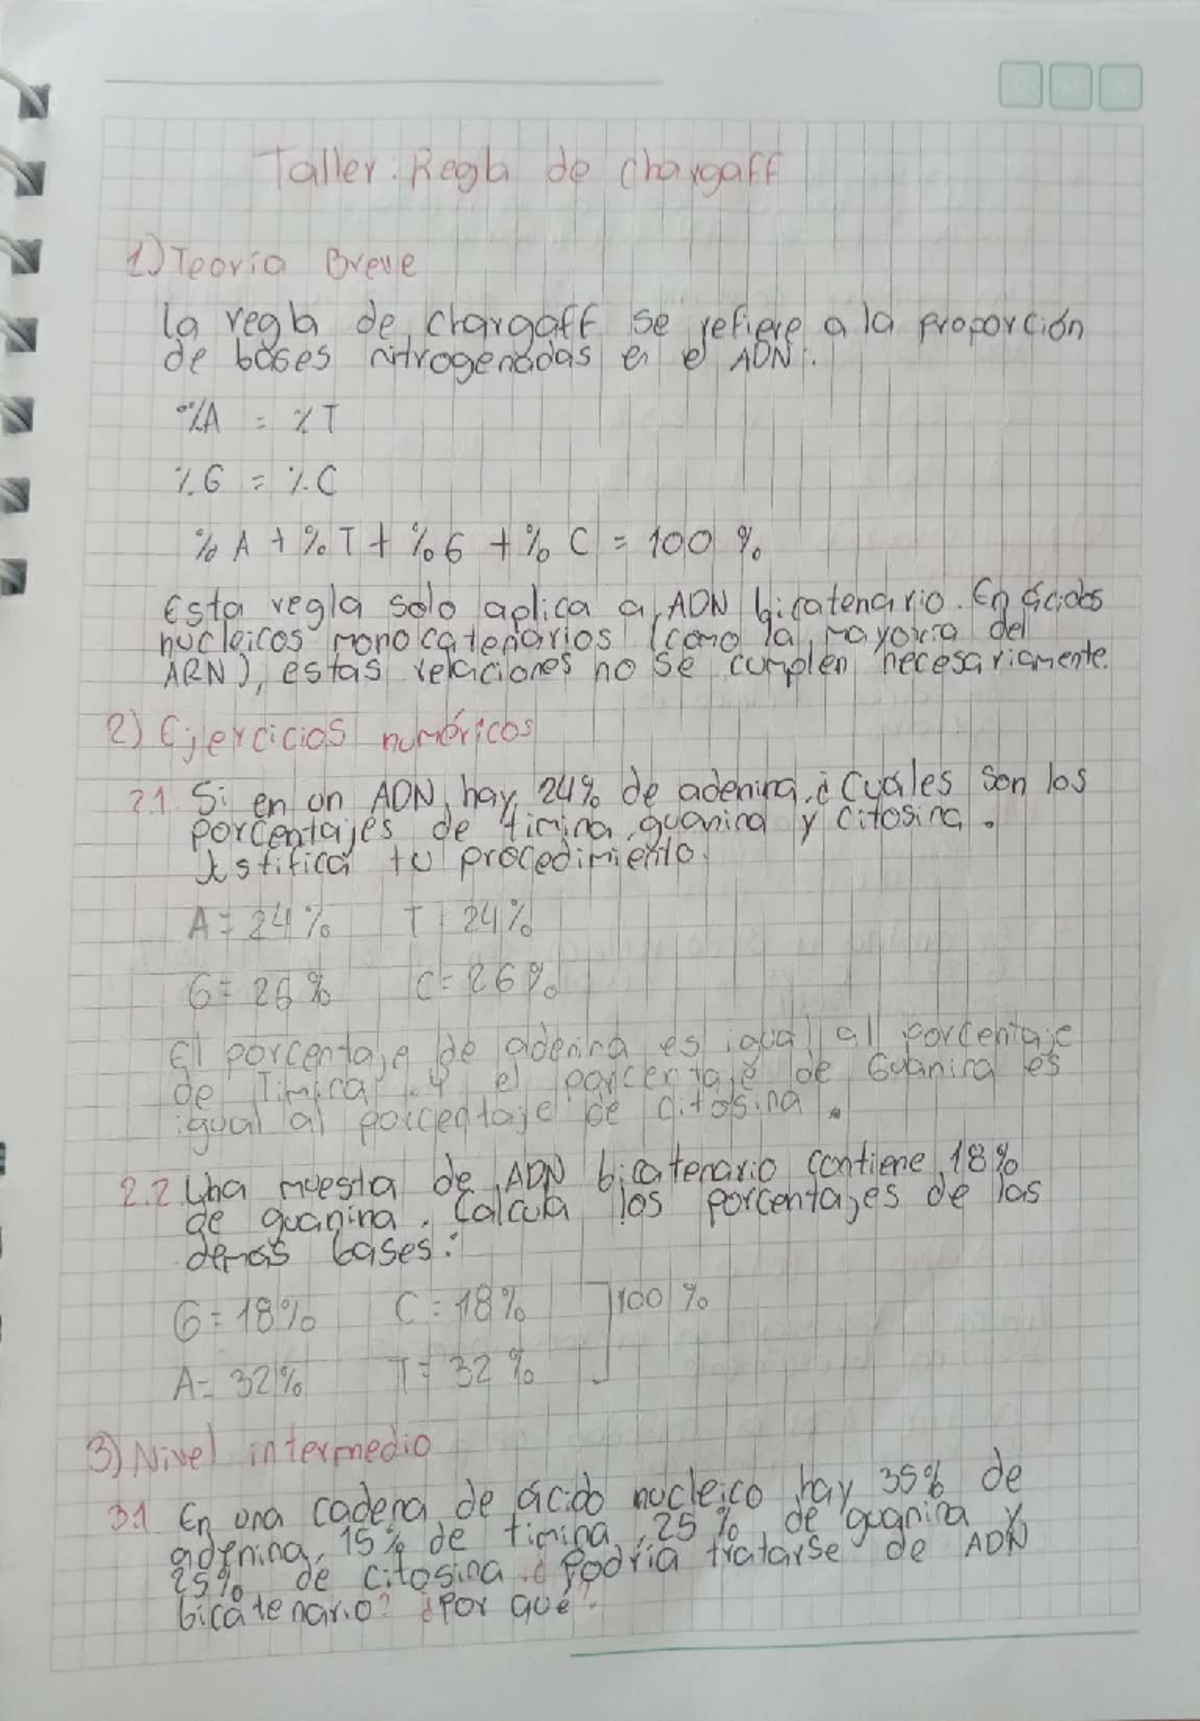 Taller: Regla de Chargaff
1) Teoría Breve
La regla de Chargaff se refiere a la proporción
de bases nitrogenadas en el ADN:
%A = %T
%G = %C
%A + %T + %G + %C = 100 %
Esta regla solo aplica a ADN bicatenario. En ácidos
nucleicos monocatenarios (como la mayoria del
ARN), estas relaciones no se cumplen necesariamente.
2) Ejercicios numéricos
2.1 Si en un ADN hay 24% de adenina. ¿Cuáles son los
porcentajes de timina, guanina y citosina.
Justifica tu procedimiento.
A = 24% T = 24%
G = 26% C = 26%
El porcentaje de adenina es igual al porcentaje
de Timina. Y el porcentaje de Guanina es
igual al porcentaje de citosina.
2.2 Una muesta de ADN bicatenario contiene 18%
de guanina. Calcula los porcentajes de las
demás bases:
G = 18% C = 18% ] 100 %
A = 32% T = 32%
3) Nivel intermedio
3.1 En una cadena de ácido nucleico hay 35% de
adenina, 15% de timina, 25% de guanina y
25% de citosina. ¿Podría tratarse de ADN
bicatenario? ¿Por qué?